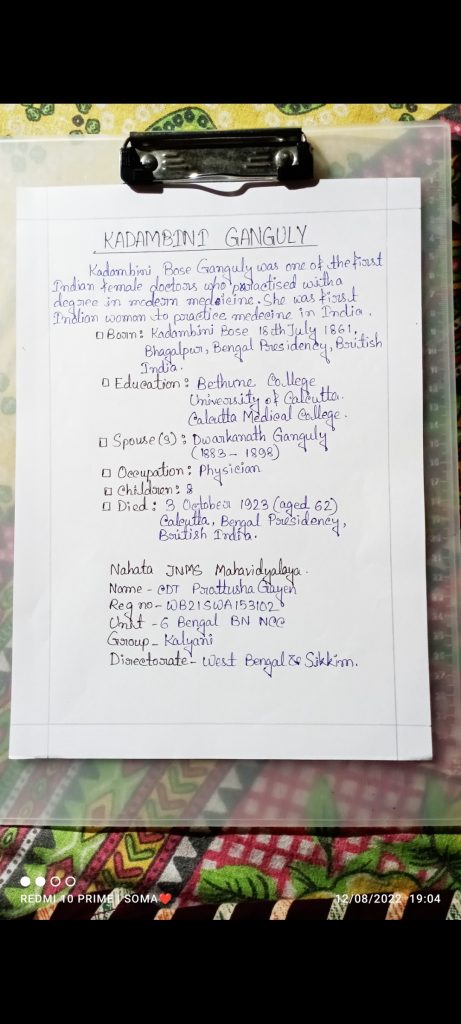 KADAMBINI GANGULY
Kadambini Bose Ganguly was one of the first
Indian female doctors who practised with a
degree in modern medeicine. She was first
Indian woman to practice medecine in India.
Born: Kadambini Bose 18th July 1861,
Bhagalpur, Bengal Presidency, British
India.
Education: Bethune College
University of Calcutta.
Calcutta Medical College.
Spouse(s): Dwarkanath Ganguly
(1883 - 1898)
Occupation: Physician
Children: 8
Died: 3 October 1923 (aged 62)
Calcutta, Bengal Presidency,
British India.
Nahata JNMS Mahavidyalaya.
Name - CDT Prattusha Gayen
Reg no - WB21SWA153102
Unit - 6 Bengal BN NCC
Group - Kalyani
Directorate - West Bengal & Sikkim.
REDMI 10 PRIME | SOMA❤
12/08/2022 19:04